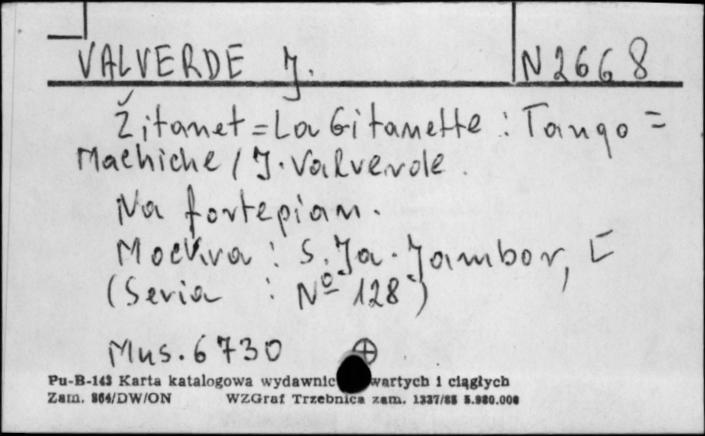 VALVERDE J. N 2668
Žitanet = La Gitanette : Tango =
Machiche / J. Valverde.
Na fortepian.
Moskva : S. Ja. Jambor, [
(Seria : № 128)
Mus. 6730
Pu-B-143 Karta katalogowa wydawnic wartych i ciągłych
Zam. 864/DW/ON WZGraf Trzebnica zam. 1337/88 5.980.000